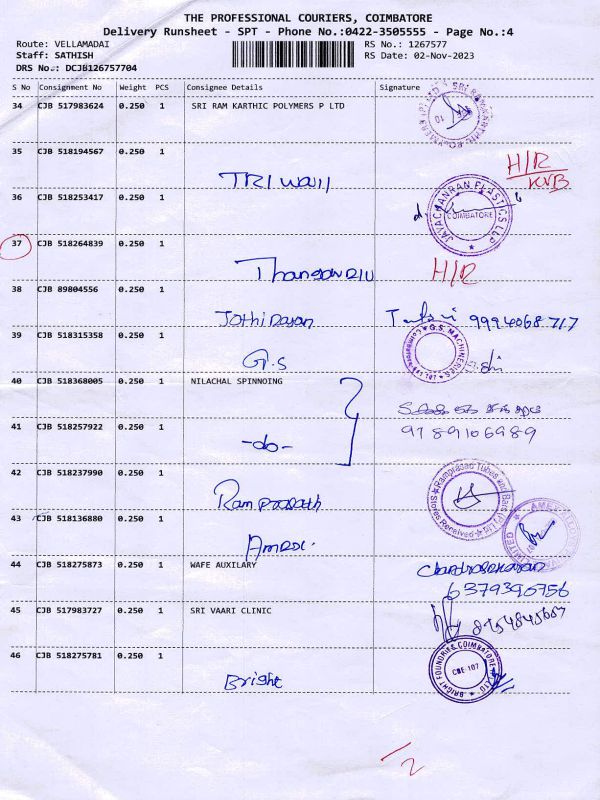 THE PROFESSIONAL COURIERS, COIMBATORE
Delivery Runsheet - SPT - Phone No.:0422-3505555 - Page No.:4
Route: VELLAMADAI RS No.: 1267577
Staff: SATHISH RS Date: 02-Nov-2023
DRS No.: DCJB126757704
S No Consignment No Weight PCS Consignee Details Signature
34 CJB 517983624 0.250 1 SRI RAM KARTHIC POLYMERS P LTD
35 CJB 518194567 0.250 1
H/R
KVB
36 CJB 518253417 0.250 1
JAYACHANRAN PLASTICS LLP
COIMBATORE
37 CJB 518264839 0.250 1
H/R
38 CJB 89804556 0.250 1
9994068717
39 CJB 518315358 0.250 1
G.S
G.S. MACHINERIES
40 CJB 518368005 0.250 1 NILACHAL SPINNOING
41 CJB 518257922 0.250 1
-do-
9789106989
42 CJB 518237990 0.250 1
Ramprasath
Ramprasad Tubes and Bars (P) Ltd
Stores Received
43 CJB 518136880 0.250 1
44 CJB 518275873 0.250 1 WAFE AUXILARY
Chandrasekaran
6379390756
45 CJB 517983727 0.250 1 SRI VAARI CLINIC
46 CJB 518275781 0.250 1
Bright
CBE-107